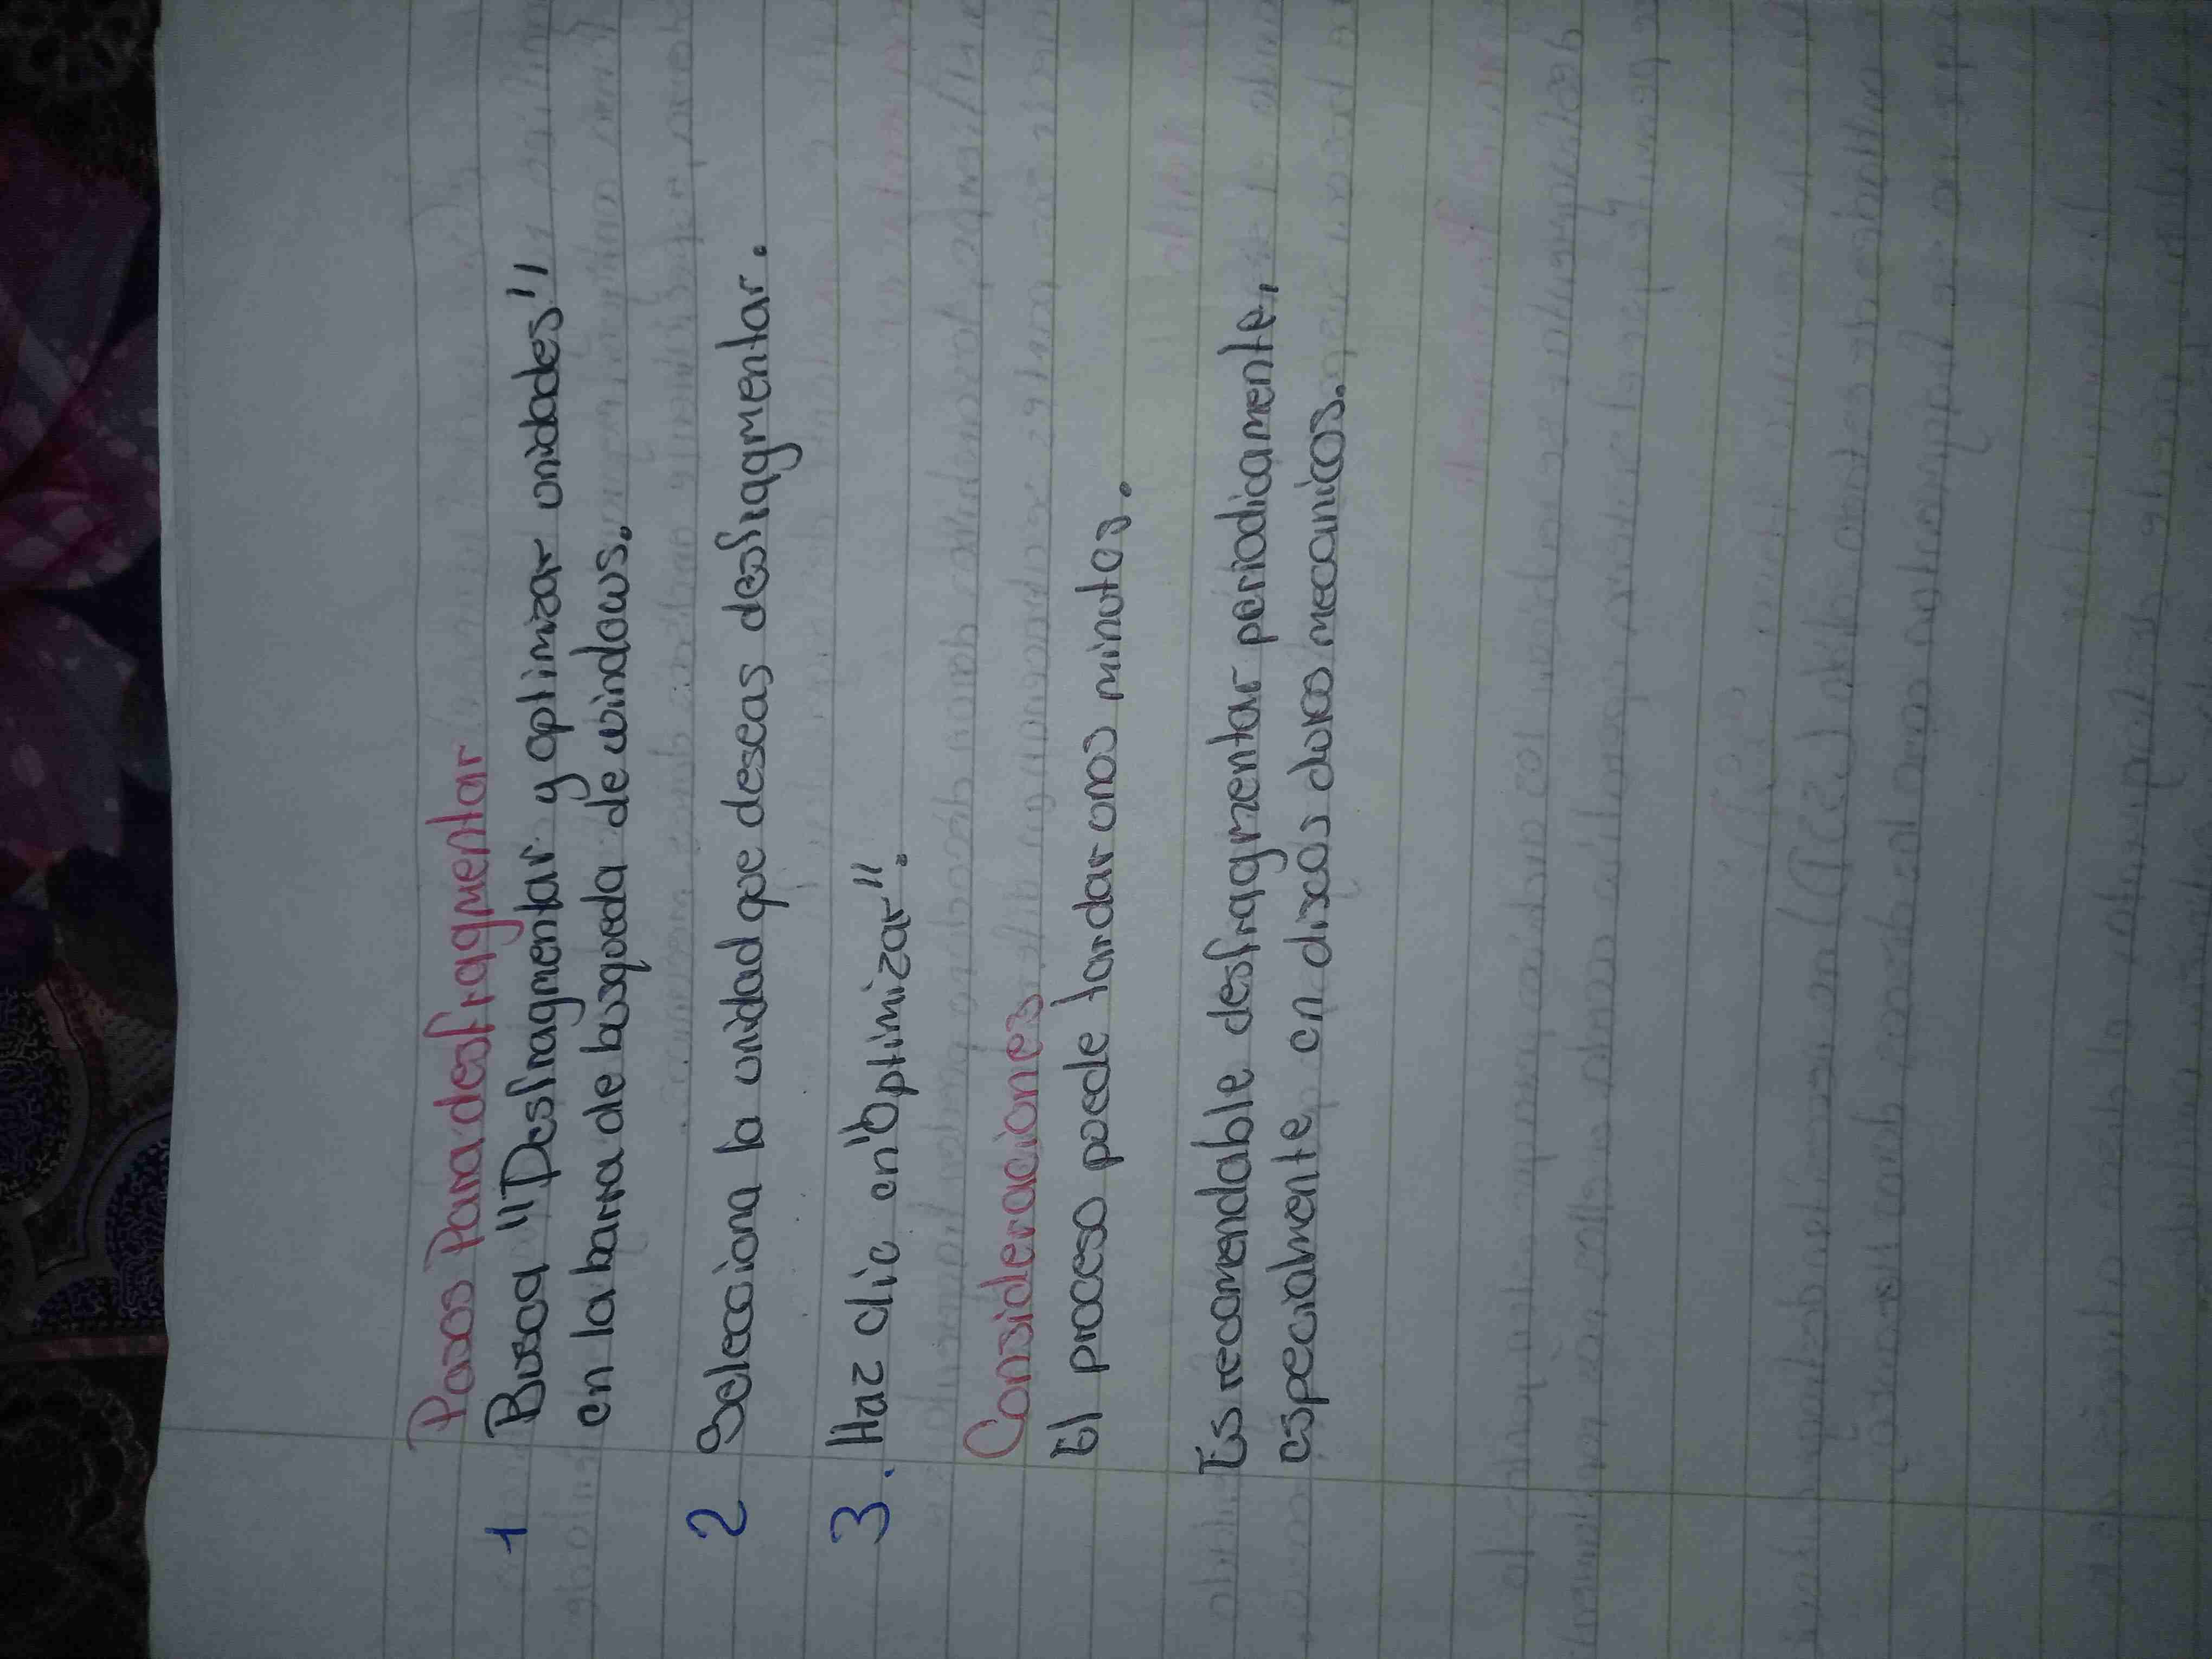 Pasos Para desfragmentar
1 Busca "Desfragmentar y optimizar unidades"
en la barra de busqueda de windows.
2 Selecciona la unidad que deseas desfragmentar.
3. Haz clic en "Optimizar".
Consideraciones
El proceso puede tardar unos minutos.
Es recomendable desfragmentar periodicamente,
especialmente en discos duros mecanicos.